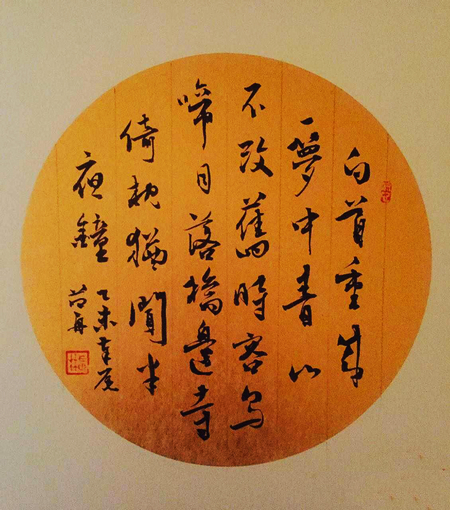 白首重來
一夢中青山
不改舊時容烏
啼月落橋邊寺
倚枕猶聞半
夜鐘
乙未